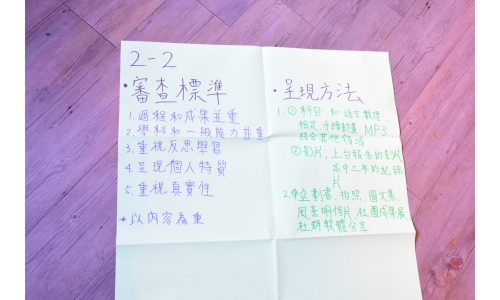 2-2
•審查標準
1.過程和成果並重
2.學科和一般能力並重
3.重視反思學習
4.呈現個人特質
5.重視真實性
*以內容為重
•呈現方法
1.①科目,和語言數理
檢定,手繪動畫,MP3
結合其他領域
②影片,上台報告的影片
高中三年的紀錄
片
2.企劃書、拍照、圖文集、
風景明信片,社團成果展、
社群軟體分享